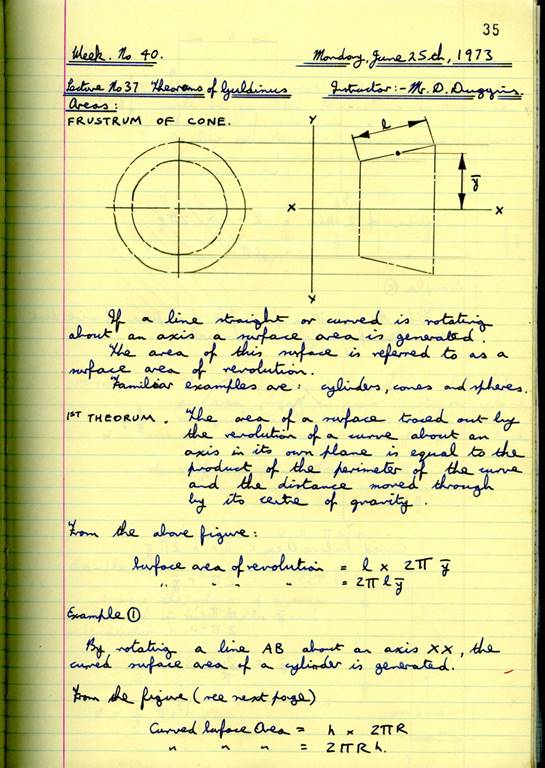 35
Week. No 40. Monday, June 25th, 1973
Lecture No 37 Theorems of Guldinus Instructor:- Mr. D. Duggins.
Areas:
FRUSTRUM OF CONE.
Y
l
ȳ
X
X
X
If a line straight or curved is rotating
about an axis a surface area is generated.
The area of this surface is referred to as a
surface area of revolution.
Familiar examples are: cylinders, cones and spheres.
1ST THEORUM. The area of a surface traced out by
the revolution of a curve about an
axis in its own plane is equal to the
product of the perimeter of the curve
and the distance moved through
by its centre of gravity.
From the above figure:
Surface area of revolution = l x 2π ȳ
" " " = 2π l ȳ
Example ①
By rotating a line AB about an axis XX, the
curved surface area of a cylinder is generated.
From the figure (see next page)
Curved Surface Area = h x 2πR
" " " = 2πR h.